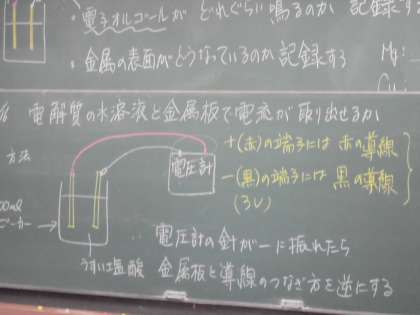 ・電子オルゴールが どれぐらい鳴るのか 記録す
・金属の表面がどうなっているのか 記録する
Mg:
電解質の水溶液と金属板で電流が取り出せるか
方法
電圧計
+(赤)の端子には 赤の導線
-(黒)の端子には 黒の導線
(3V)
ビーカー
うすい塩酸
電圧計の針が一に振れたら
金属板と導線のつなぎ方を逆にする